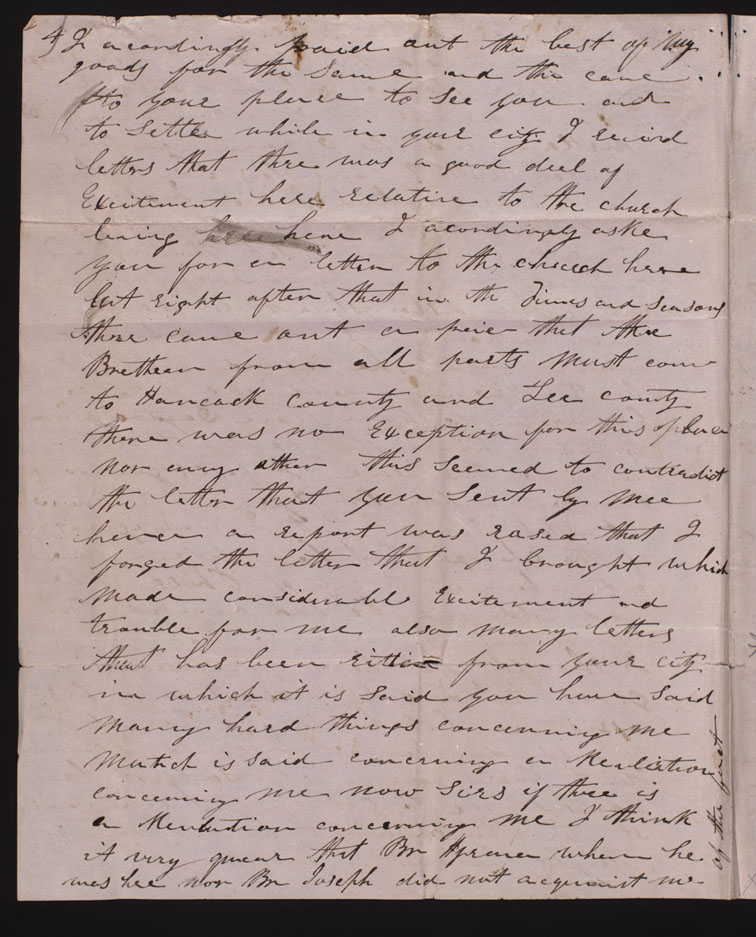 4 I acordingly paid out the best of my
goods for the same and the came
to your place to see you and
to settle while in your city I recivd
letters that thre was a good deel of
Excitement here relative to the church
being here I acordingly aske
you for a letter to the church here
but right after that in the Times and Seasons
thre came out a peice that the
Brethren from all parts must come
to Hancock county and Lee county
there was no Exception for this place
nor any other this seemed to contradict
the letter that you sent by mee
hence a report was rased that I
forged the letter that I brought which
made considerable Excitement and
trouble for me also many letters
that has been ritten from your city
in which it is said you have said
many hard things concerning me
Mutch is said concerning a Revelation
concerning me now Sirs if thre is
a Revelution concerning me I think
it very quear that Br Hyrum when he
was hre nor Br Joseph did not acquaint me
of the first